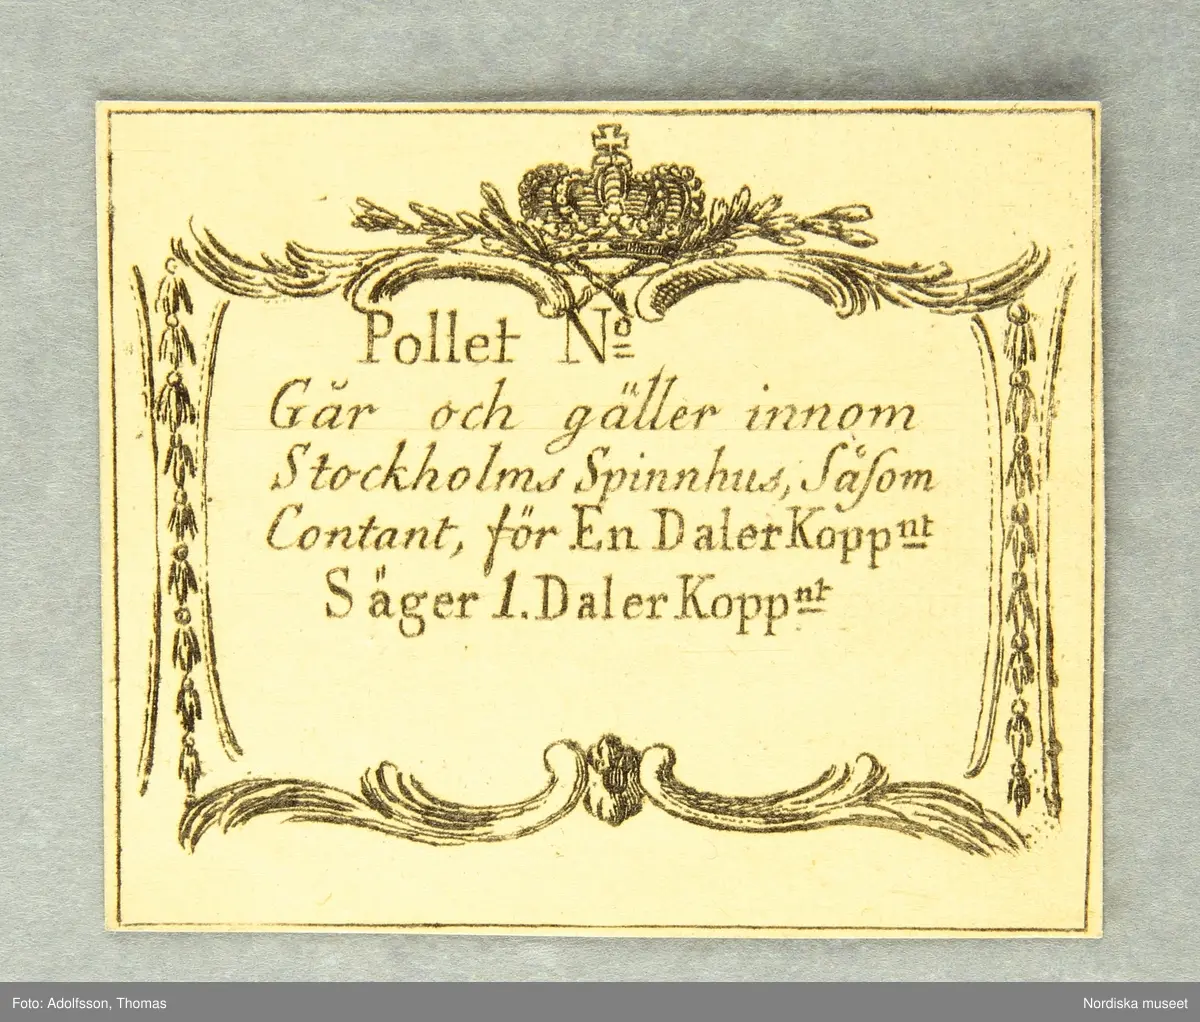 Pollet Nº
Går och gäller innom
Stockholms Spinnhus, Såſom
Contant, för En Daler Koppnt
Säger 1. Daler Koppnt
Foto: Adolfsson, Thomas
Nordiska museet